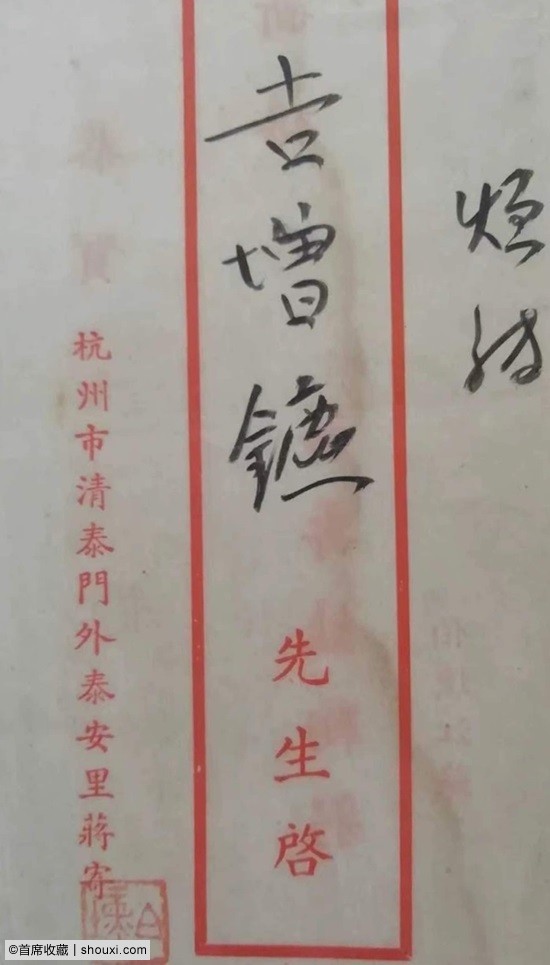 煩交
吉增鑣
先生啓
杭州市清泰門外泰安里蔣寄
©首席收藏 | shouxi.com